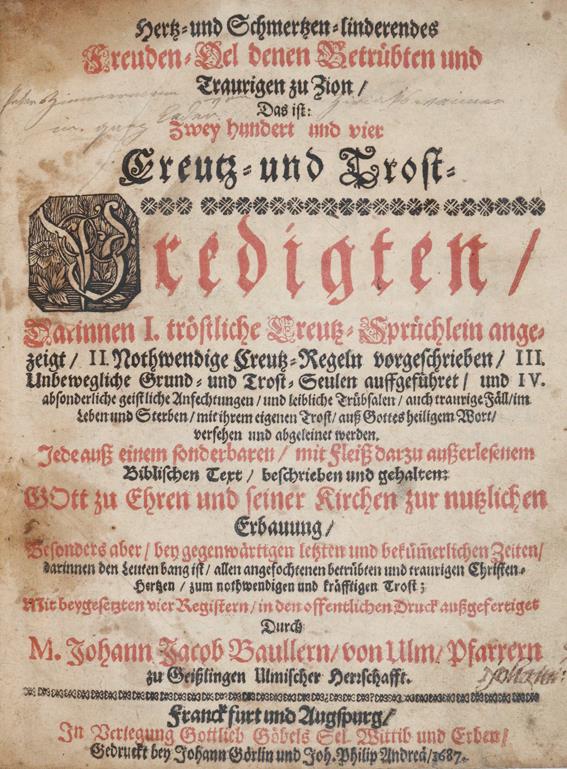 Hertz-und Schmertzen-linderendes
Freuden-Oel denen Betrübten und
Traurigen zu Zion /
Das ist:
Zwey hundert und vier
Creutz-und Trost-
Predigten /
Darinnen I. tröstliche Creutz-Sprüchlein ange-
zeigt / II. Nothwendige Creutz-Regeln vorgeschrieben / III.
Unbewegliche Grund- und Trost-Seulen auffgeführet / und IV.
absonderliche geistliche Anfechtungen / und leibliche Trübsalen / auch traurige Fäll / im
Leben und Sterben / mit ihrem eigenen Trost / auß Gottes heiligem Wort /
versehen und abgeleinet werden.
Jede auß einem sonderbaren / mit Fleiß darzu außerlesenem
Biblischen Text / beschrieben und gehalten:
GOtt zu Ehren und seiner Kirchen zur nutzlichen
Erbauung /
Besonders aber / bey gegenwärtigen letzten und bekům̃erlichen Zeiten /
darinnen den Leuten bang ist / allen angefochtenen betrübten und traurigen Christen-
Hertzen / zum nothwendigen und kräfftigen Trost;
Mit beygesetzten vier Registern / in den offentlichen Druck außgefertiget
Durch
M. Johann Jacob Baullern / von Ulm / Pfarrern
zu Geißlingen Ulmischer Herrschafft.
Franckfurt und Augspurg /
In Verlegung Gottlieb Göbels Sel. Wittib und Erben /
Gedruckt bey Johann Görlin und Joh. Philip Andreä / 1687.